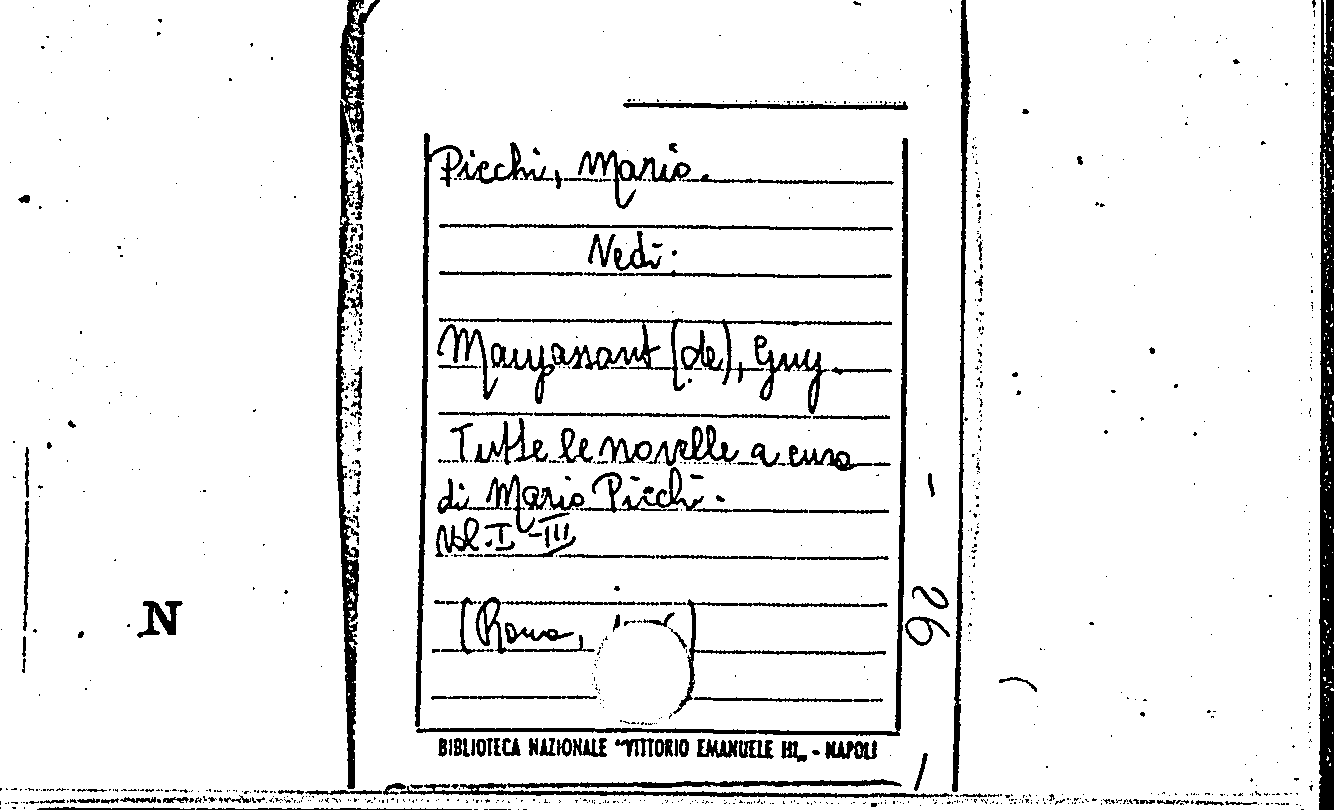 Picchi, Mario.
Vedi:
Maupassant (de), Guy.
Tutte le novelle a cura
di Mario Picchi.
Vol. I-III
(Roma, )
26
N
BIBLIOTECA NAZIONALE "VITTORIO EMANUELE III„ - NAPOLI